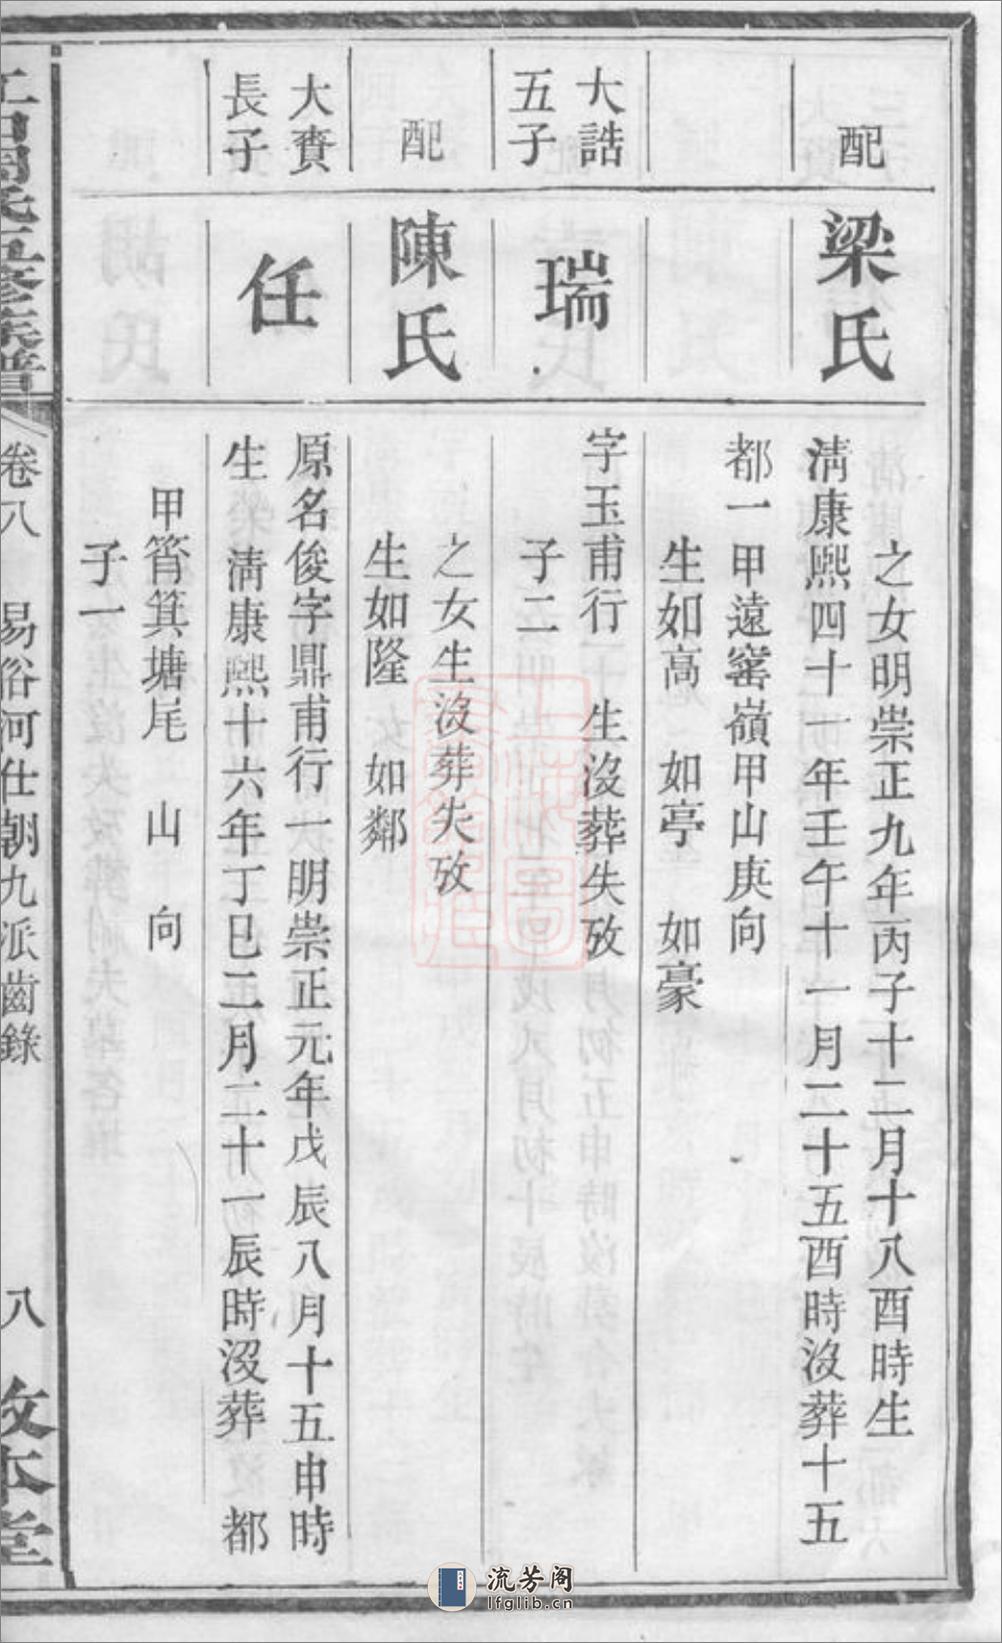 配
梁氏
之女明崇正九年丙子十二月十八酉時生
淸康熙四十一年壬午十一月二十五酉時沒葬十五
都一甲遠窰嶺甲山庚向
生如高 如亭 如豪
大誥
五子
瑞
字玉甫行二 生沒葬失攷
子二
配
陳氏
之女生沒葬失攷
生如隆 如鄰
大賚
長子
任
原名俊字鼎甫行一明崇正元年戊辰八月十五申時
生 淸康熙十六年丁巳二月二十一辰時沒葬 都
甲筲箕塘尾 山 向
子一
五修族譜
卷八 易俗河仕朝九派齒錄
八
敦本堂
流芳阁
lfglib.cn